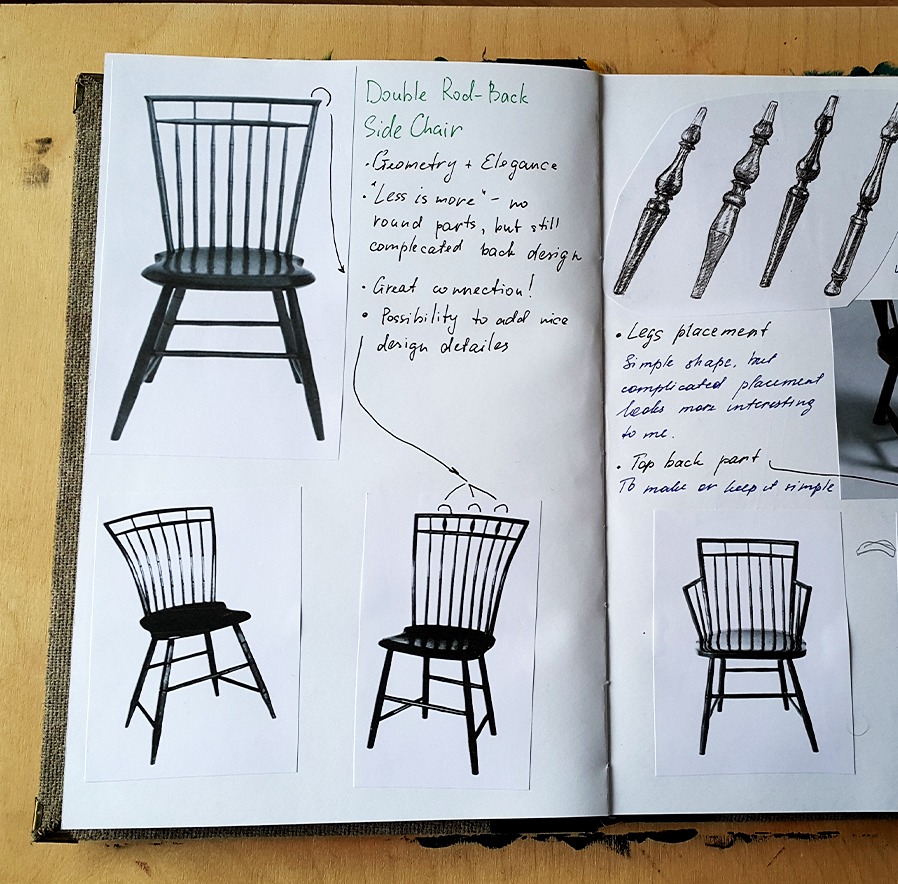 Double Rod-Back
Side Chair
• Geometry + Elegance
• "Less is more" - no
round parts, but still
complecated back design
• Great connection!
• Possibility to add nice
design detailes
• Legs placement
Simple shape, but
complicated placement
looks more interesting
to me.
• Top back part
To make or keep it simple